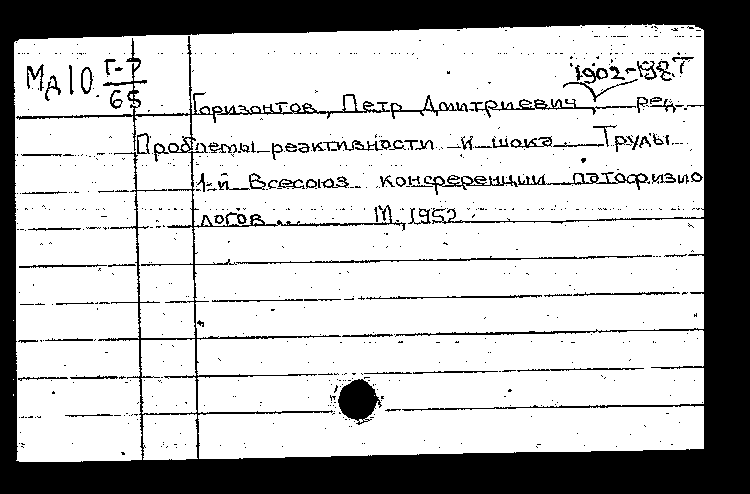 1902-1987
Мд10 Г-7
65
Горизонтов, Петр Дмитриевич, ред.
Проблемы реактивности и шока. Труды
1-й Всесоюз. конференции патофизио
логов... М., 1952